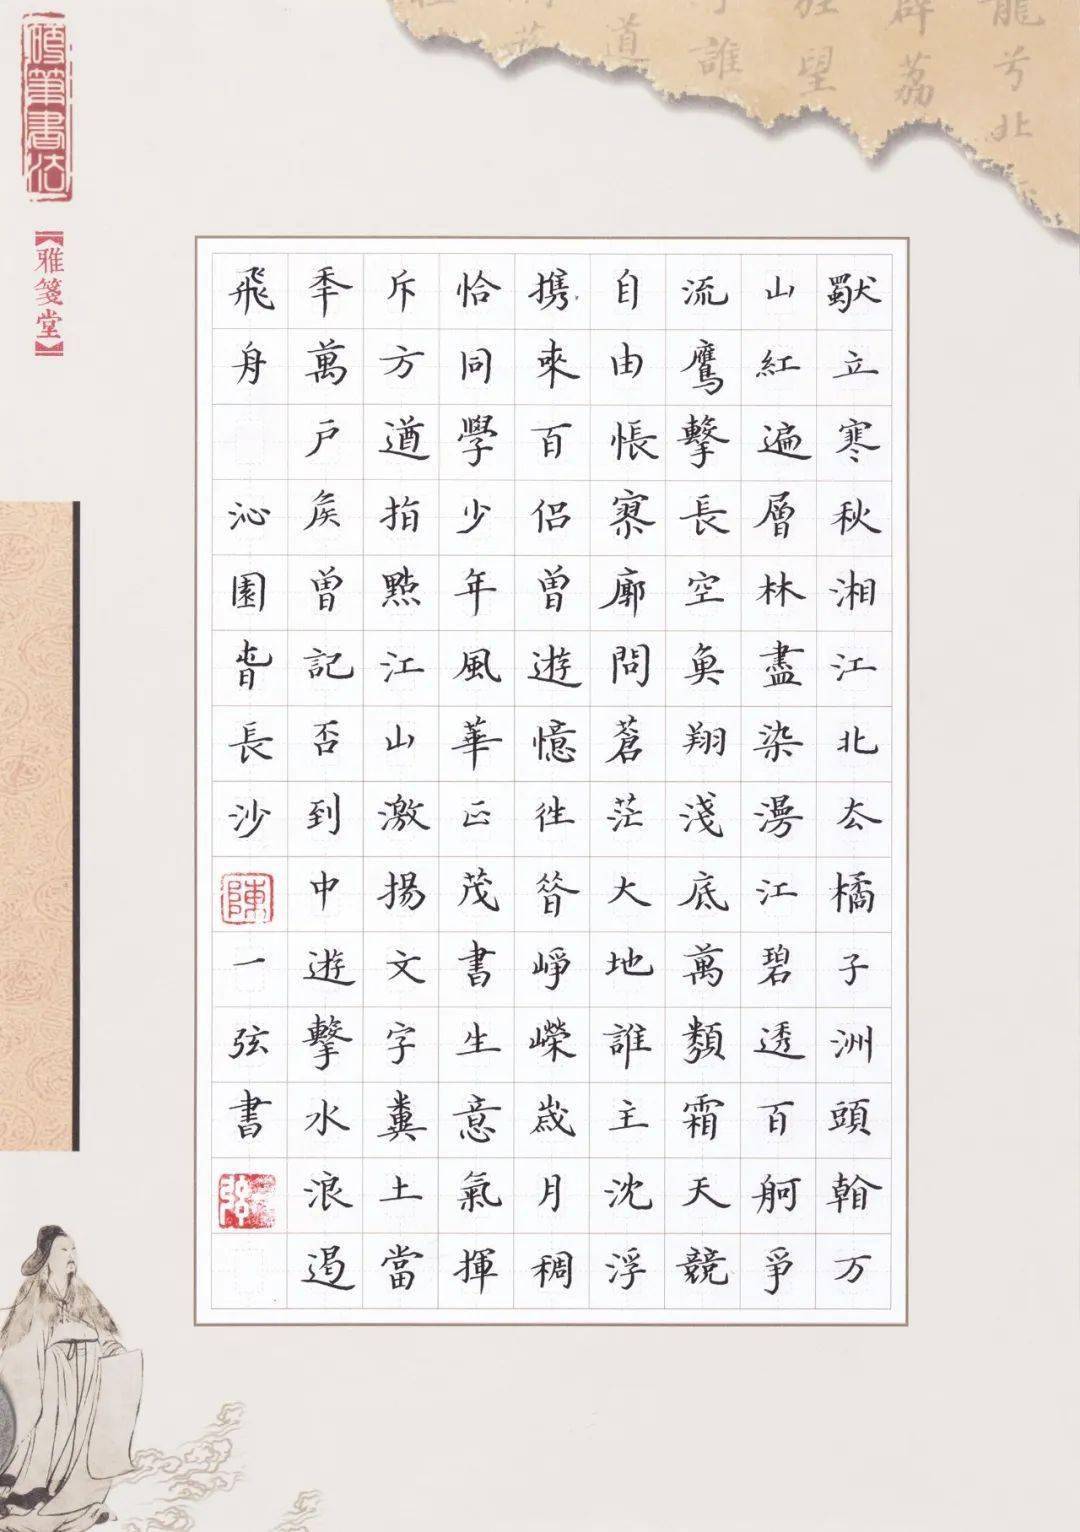 硬筆書法
【雅箋堂】
龍兮北
荔
望
誰
道
獨立寒秋湘江北去橘子洲頭看万
山紅遍層林盡染漫江碧透百舸爭
流鷹擊長空魚翔淺底萬類霜天競
自由悵寥廓問蒼茫大地誰主沈浮
携來百侶曾遊憶往昔崢嶸歲月稠
恰同學少年風華正茂書生意氣揮
斥方遒指點江山激揚文字糞土當
秊萬戶侯曾記否到中遊擊水浪遏
飛舟 沁園春長沙 陳 一弦書 弦